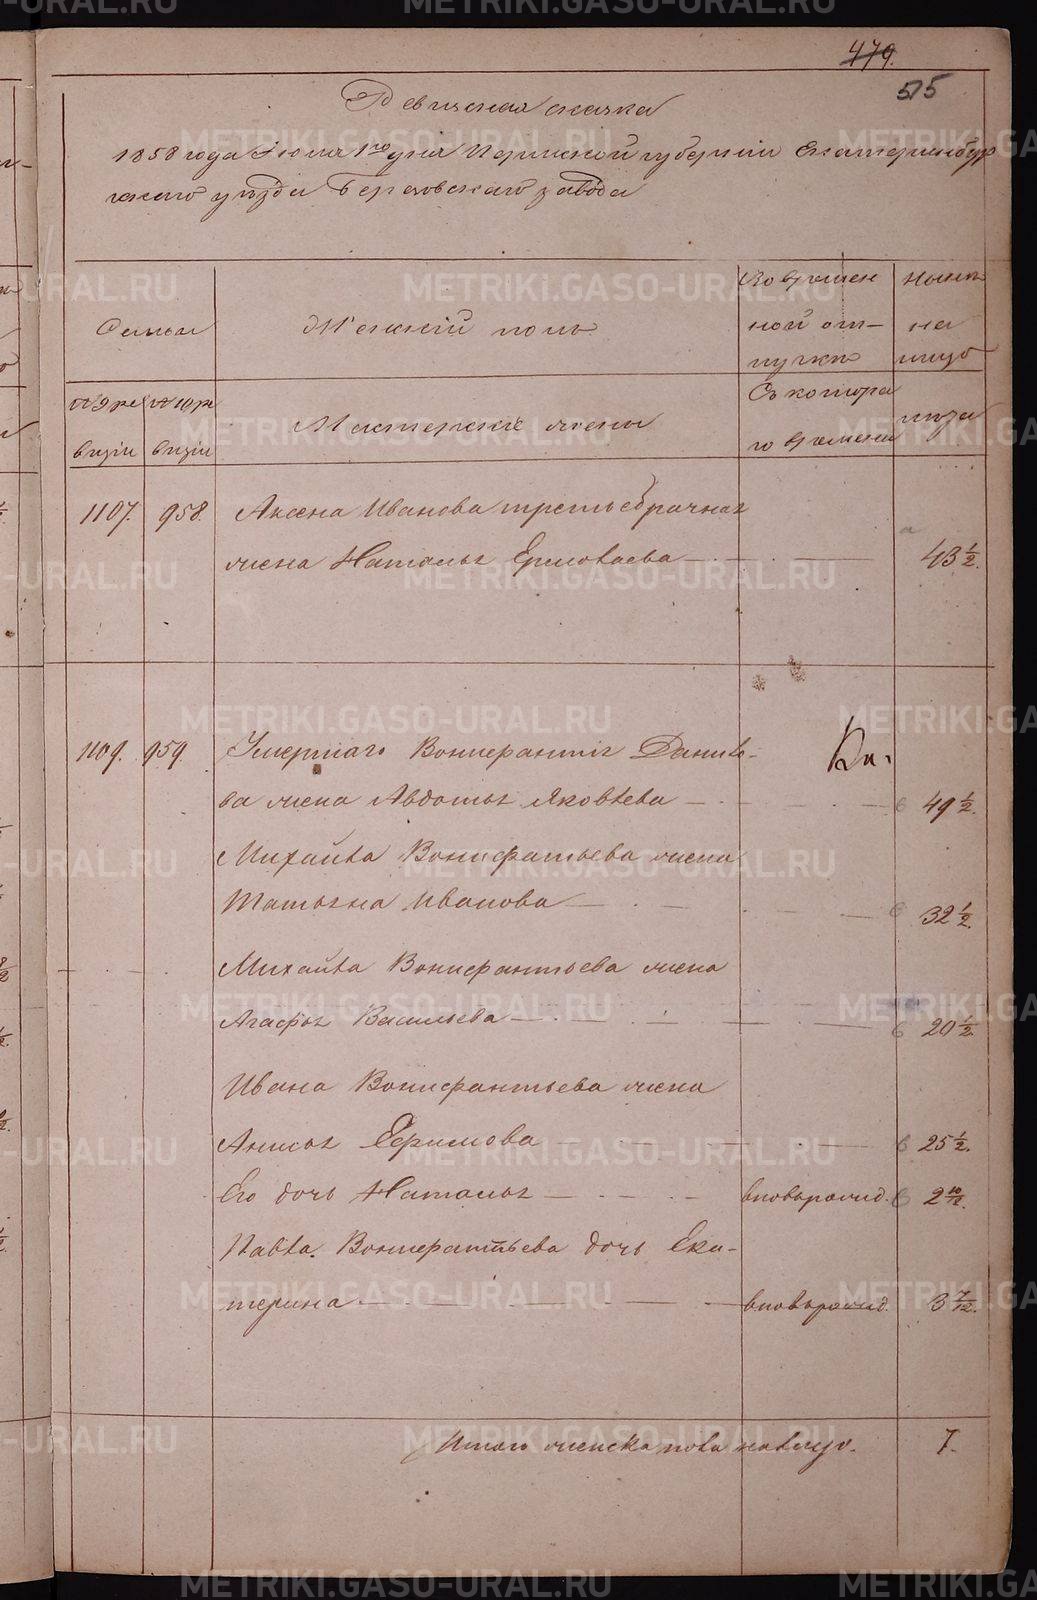 479.
515
Ревизская сказка
1858 года Июня 1го дня Пермской губернии Екатеринбур
гского уезда Березовского завода
Семьи
Женский пол
Во времен
ной от-
лучке
Ныне
на
лицо
По 9 ре
визии
По 10 ре
визии
Мастерские жены
С котора
го времени
лета
1107. 958. Аксена Иванова третьебрачная
жена Наталья Ермолаева 43 1/2.
1109. 959. Умершаго Вонифантия Данило-
Ек.
ва жена Авдотья Яковлева 6 49 1/2.
Михайла Вонифатьева жена
Татьяна Иванова 6 32 1/2.
Михайла Вонифантьева жена
Агафья Васильева 6 20 1/2.
Ивана Вонифантьева жена
Анисья Ефимова 6 25 1/2.
Его дочь Наталья вновьрожд. 6 2 10/12.
Павла Вонифатьева дочь Ека-
терина вновьрожд. 3 7/12.
Итого женска пола налицо. 7.
METRIKI.GASO-URAL.RU